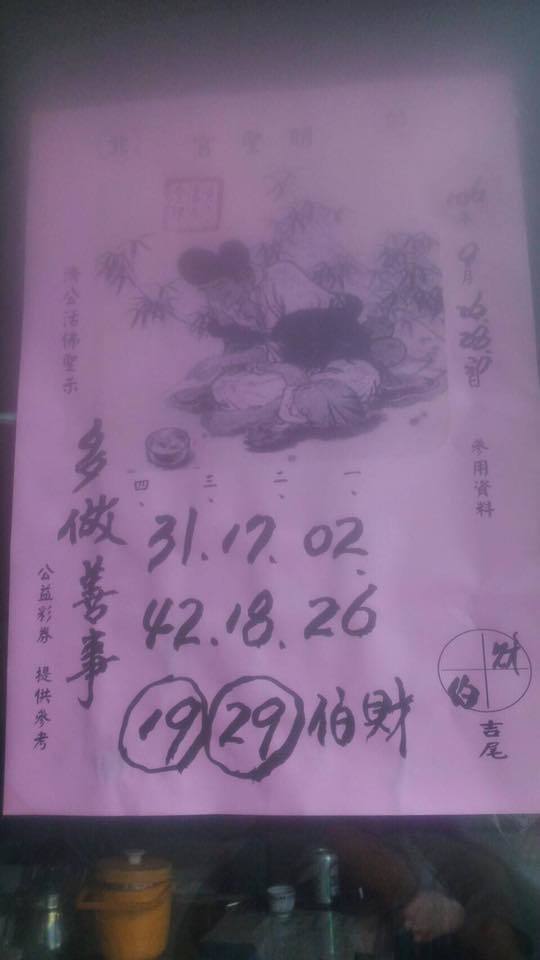 聖宮
9月26.28.30
參用資料
一、
二、
三、
四、
濟公活佛聖示
多做善事
公益彩券 提供參考
31.17.02.
42.18.26
19 29 伯財
財
伯
吉尾